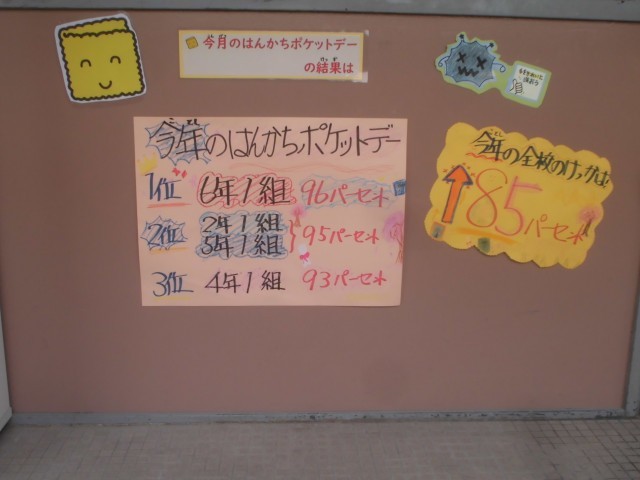 今月のはんかちポケットデー
の結果は
今年のはんかちポケットデー
1位 6年1組 96パーセント
2位 2年1組
5年1組 95パーセント
3位 4年1組 93パーセント
今年の全校のけっかは!
85パーセント